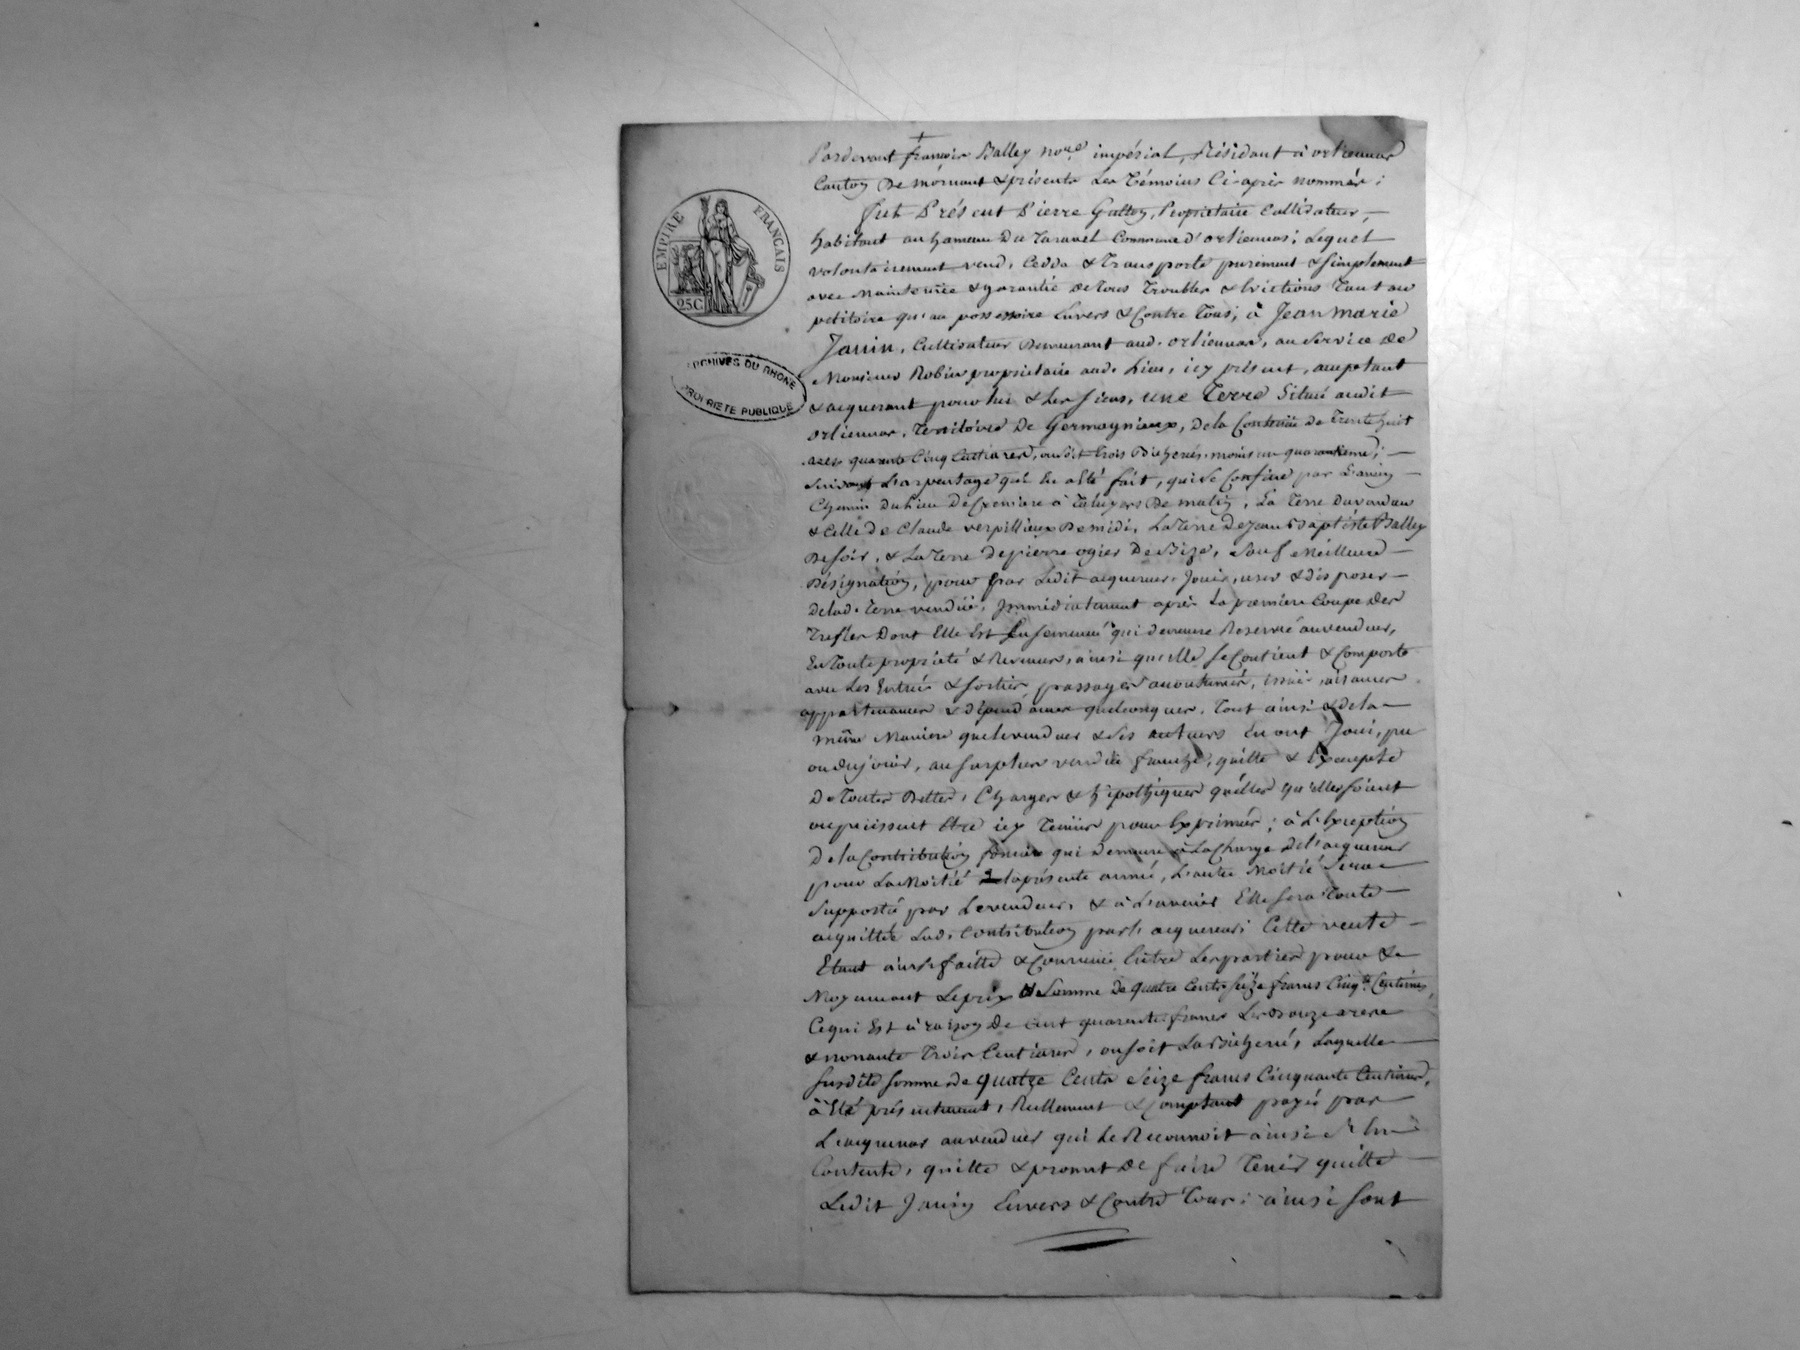 EMPIRE FRANÇAIS
25C
ARCHIVES DU RHONE
PROPRIETE PUBLIQUE
Pardevant françois Balley no.re impérial, Résidant à orlienas
Canton De mornant & présents Les Témoins Ci-après nommés;
fut Présent Pierre Gutton, Propriétaire Cultivateur,
habitant au hameau Du Taravel Commune d'orlienas; Lequel
volontairement vend, Cedde & Transporte purement & simplement
avec Maintenüe & garantie de tous Troubles & Evictions Tant au
petitoire qu'au possessoire Envers & Contre Tous; à Jean Marie
Janin, Cultivateur Demeurant aud. orlienas, au Service de
Monsieur Robin propriétaire aud. Lieu, icy présent, acceptant
& acquerant pour lui & Les Siens, une Terre Situé audit
orlienas, Territoire De Germagnieux, de la Contenüe de Trente huit
ares quarante Cinq Centiares, ou soit trois Bicherées moins un quarantieme;
Suivant L'arpentage qui en a été fait, qui se Confine par L'ancien
Chemin du Lieu De à Taluyers De matin, La Terre
& Celle De Claude verpillieux De midi, La Terre De Jean Baptiste Balley
De soir, & La Terre de pierre ogier De Bize, Sauf Meilleure
Désignation, pour par Ledit acquereur Jouir, user & disposer
de lad. Terre vendüe, Immédiatement après La premiere Coupe Des
Trefles Dont Elle Est Ensemencé qui demeure Reservé au vendeur,
En Toute propriété & Revenus, ainsi qu'elle se Contient & Comporte
avec Les Entrées & sorties, passages accoutumés, issües, aisances
appartenances & dépendances quelconques, Tout ainsi & de la
même Maniere que le vendeur & Ses auteurs En ont Joui, pu
ou dû jouir, au surplus vendüe franche, quitte & Exempte
De Toutes Dettes, Charges & hipothèques quelles qu'elles soient
ou puissent Etre icy Tenües pour Exprimées; à L'Exception
De la Contribution fonciere qui Demeure à La Charge de L'acquereur
pour La Moitié la présente année, L'autre Moitié Sera
Supportée par Le vendeur, & à L'avenir Elle sera Toute
acquittée Lad. Contribution par L'acquereur; Cette vente
Etant ainsi faitte & Convenüe Entre Les parties pour &
Moyennant Le prix & Somme De quatre Cents Seize francs Cinq.te Centimes,
Ce qui Est à raison De Cent quarante francs Les Douze ares
& nonante Trois Centiares, ou soit La Bicherée, Laquelle
Susdite Somme De quatre Cents Seize francs Cinquante Centimes,
à Eté présentement, Réellement & Comptant payée par
L'acquereur au vendeur qui Le Reconnoit ainsi S'en
Contente, quitte & promet De faire Tenir quitte
Ledit Janin Envers & Contre Tous; ainsi sont